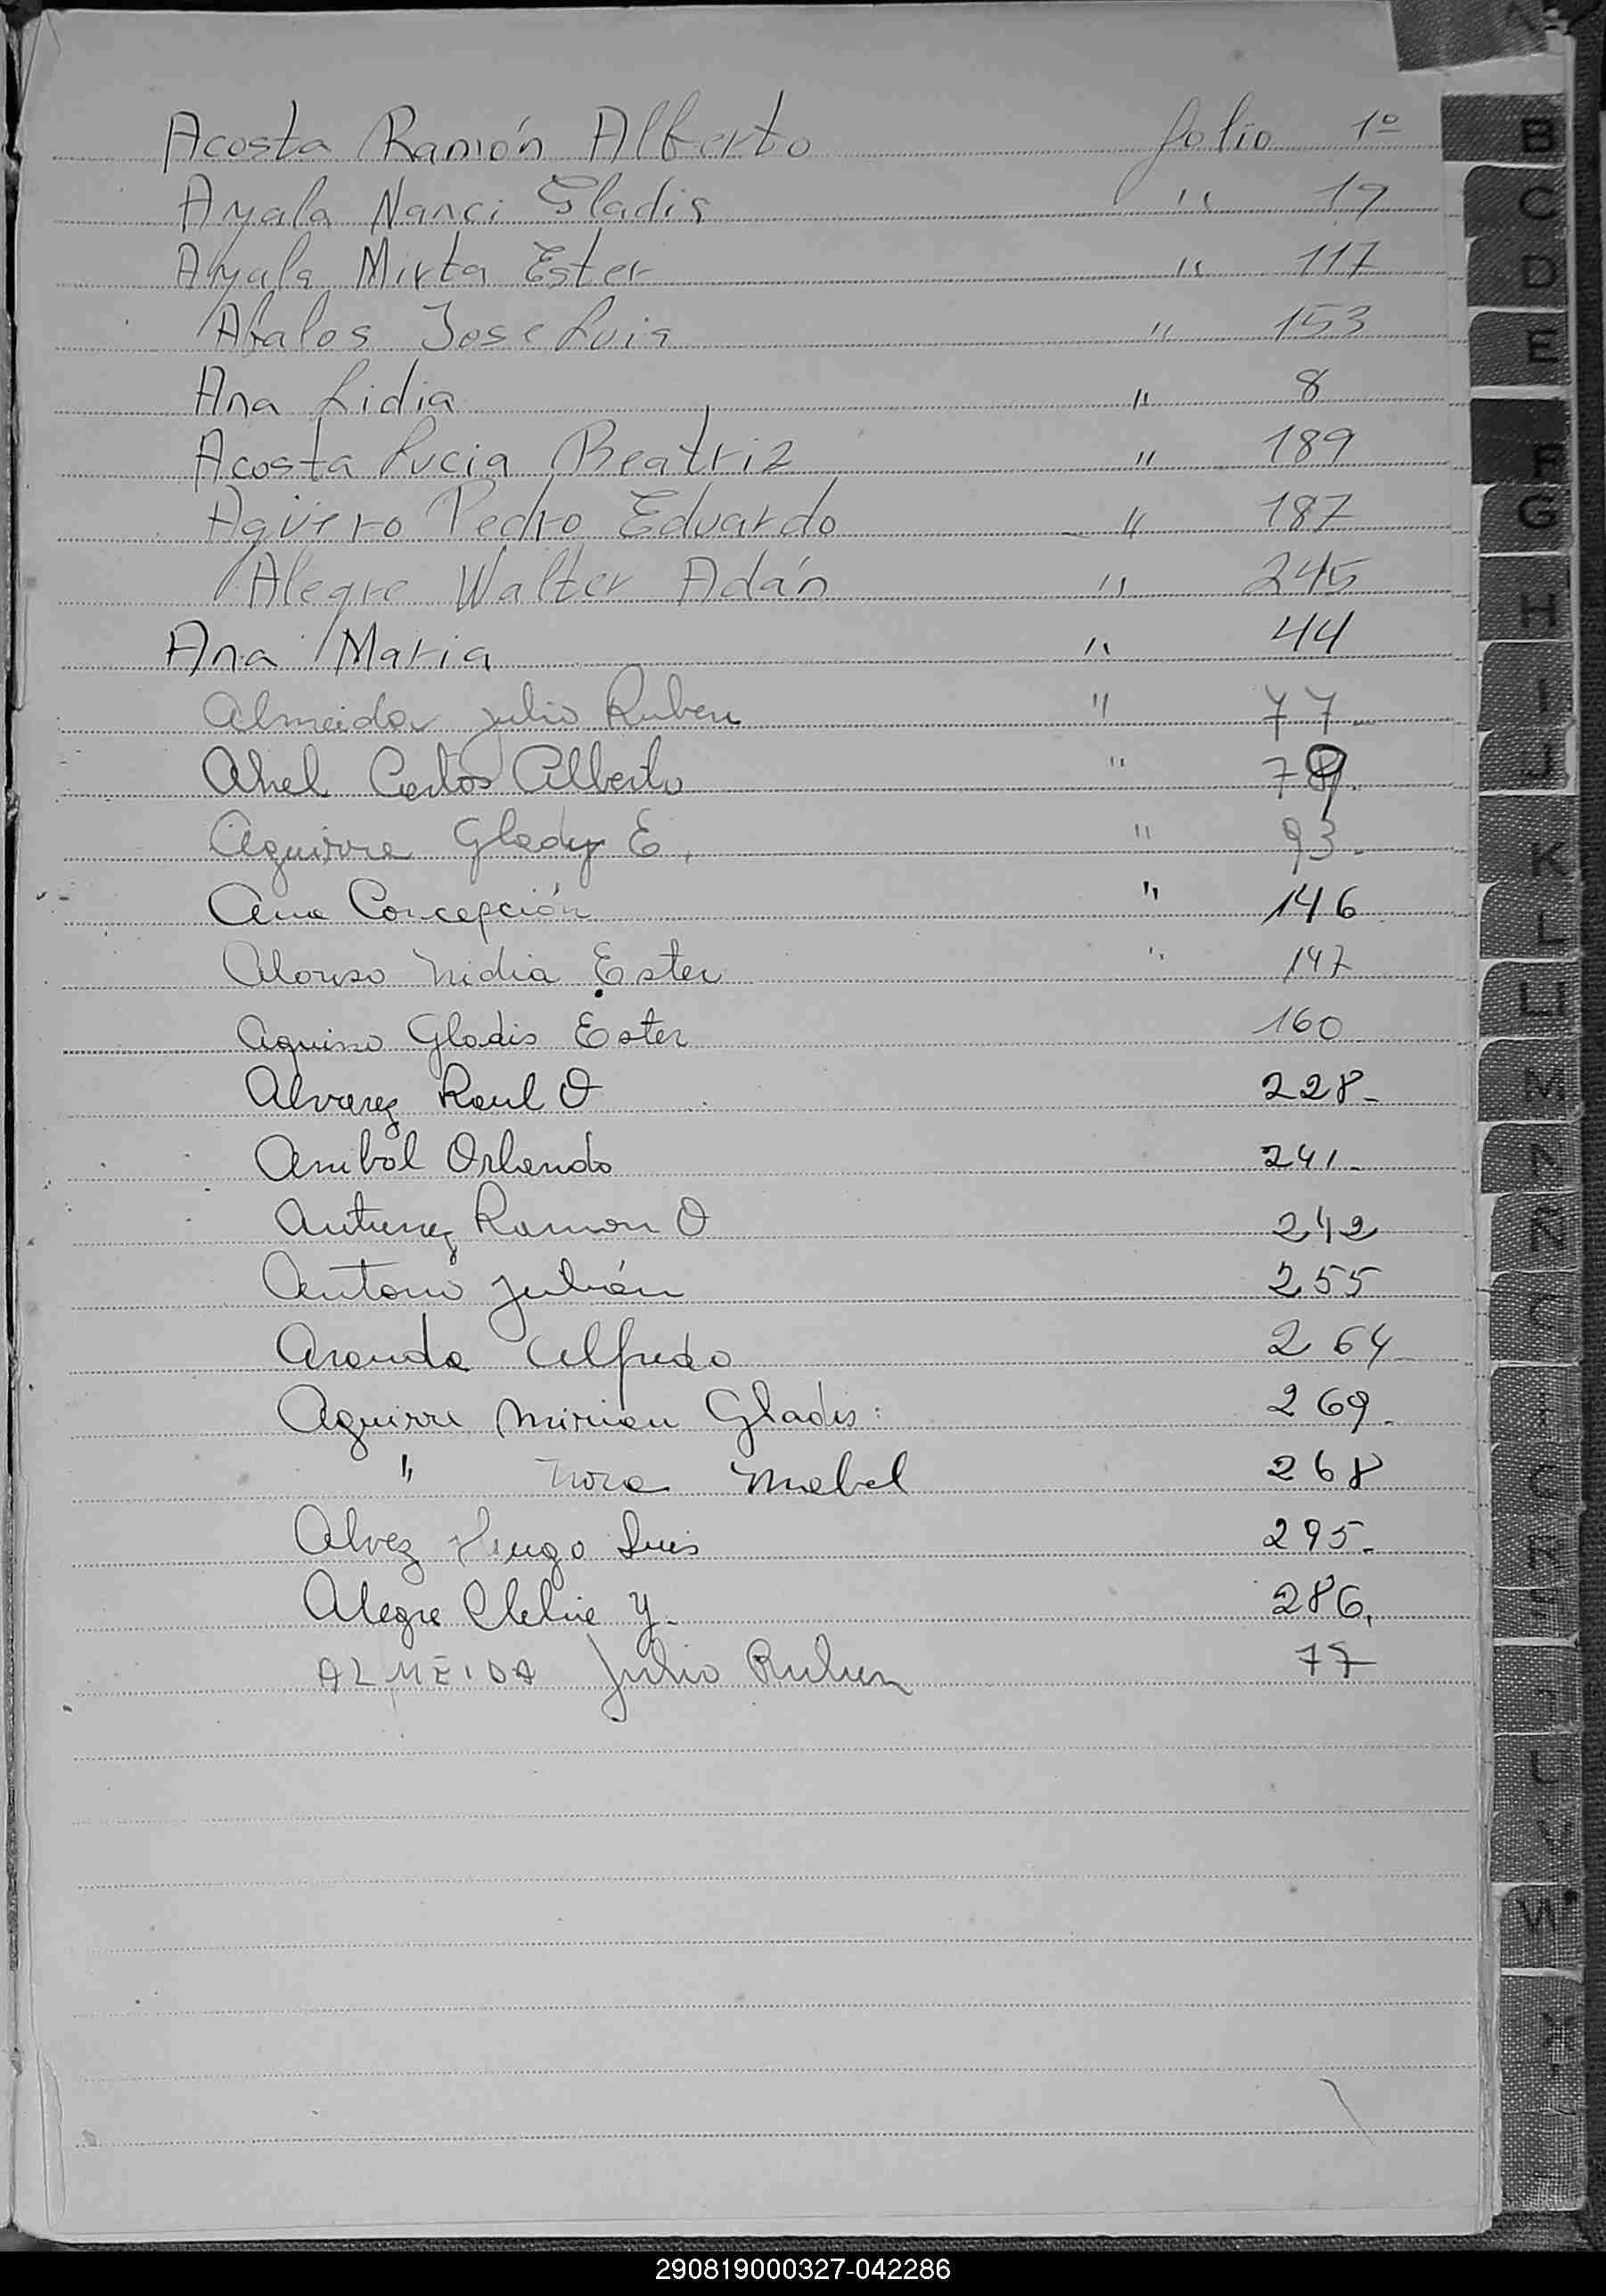 Acosta Ramón Alberto folio 1º
Ayala Nanci Gladis " 19
Ayala Mirta Ester " 117
Abalos Jose Luis " 153
Ana Lidia " 8
Acosta Lucia Beatriz " 189
Agüero Pedro Eduardo " 187
Alegre Walter Adán " 245
Ana Maria " 44
Almeida Julio Ruben " 77
Carlos Alberto "
Aguirre Glady E. " 93-
Ana Concepción " 146
Alonso Nidia Ester " 147
Aquino Gladis Ester 160
Alvarez Raul O 228-
Anibal Orlando 241-
Antunez Ramon O 242
Antonio Julián 255
Aranda Alfredo 264
Aguirre Mirian Gladis: 269-
" Nora Mabel 268
Alvez Hugo Luis 295-
Alegre Y. 286,
ALMEIDA Julio Ruben 77
B
C
D
E
F
G
H
I
J
K
L
LL
M
N
Ñ
O
R
V
W
290819000327-042286